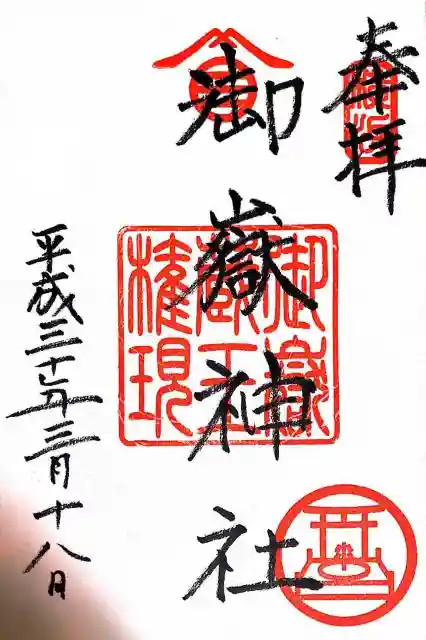 奉拝
御嶽神社
御嶽
蔵王
権現
平成三十年三月十八日